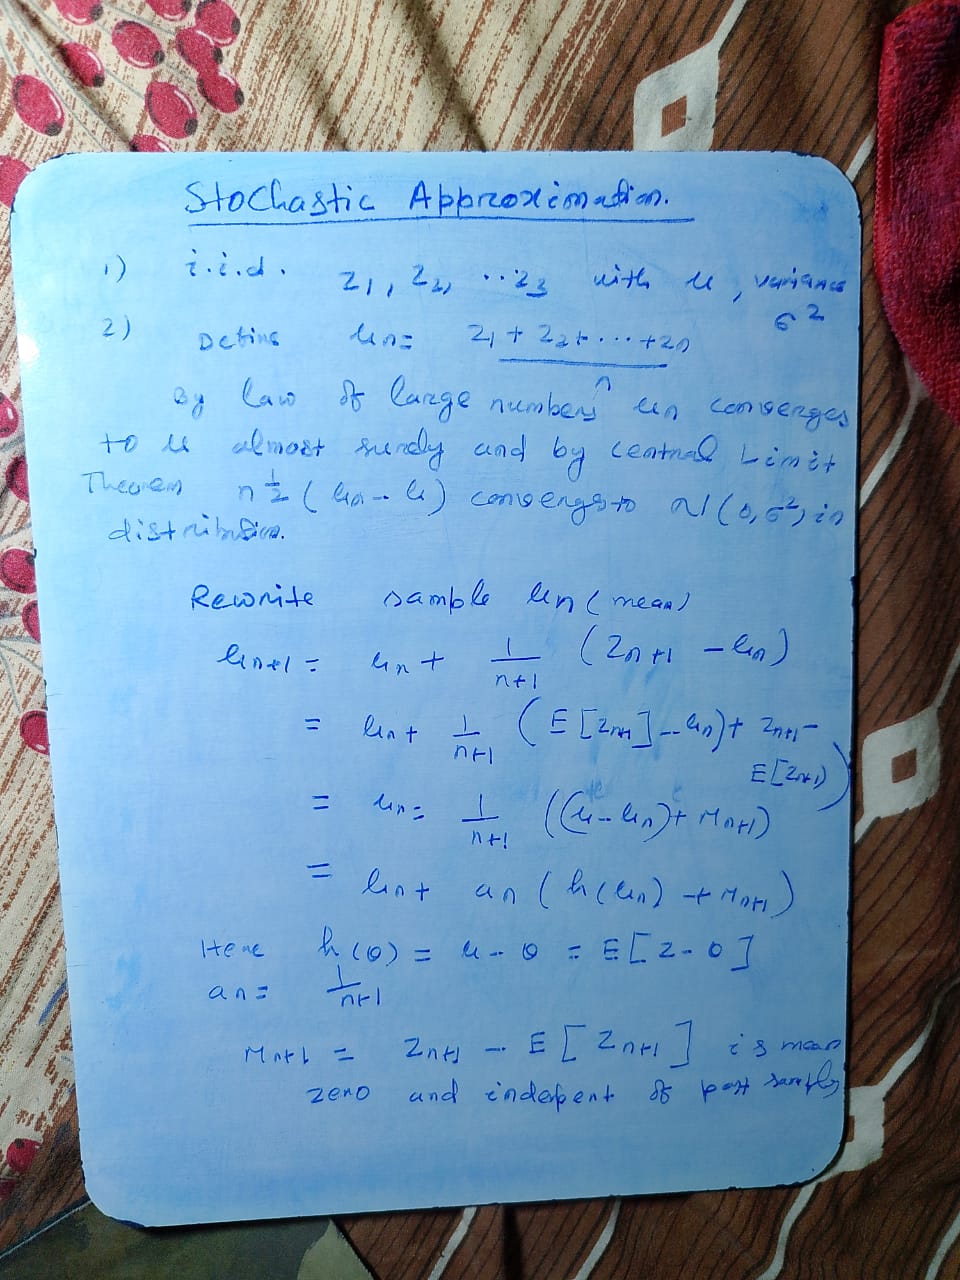 Stochastic Approximation.
1) i.i.d. z1, z2, ..z3 with μ, variance σ^2
2) Define μn = z1 + z2 + ... + zn / n
By law of large numbers μn converges
to μ almost surely and by central Limit
Theorem n^1/2 (μn - μ) converges to N(0, σ^2) in
distribution.
Rewrite sample μn (mean)
μn+1 = μn + 1/n+1 (Zn+1 - μn)
= μn + 1/n+1 (E[Zn+1] - μn) + Zn+1 - E[Zn+1))
= μn = 1/n+1 ((μ - μn) + Mn+1)
= μn + an (h(μn) + Mn+1)
Here h(θ) = μ - θ = E[Z - θ]
an = 1/n+1
Mn+1 = Zn+1 - E[Zn+1] is mean
zero and indepent of past samples